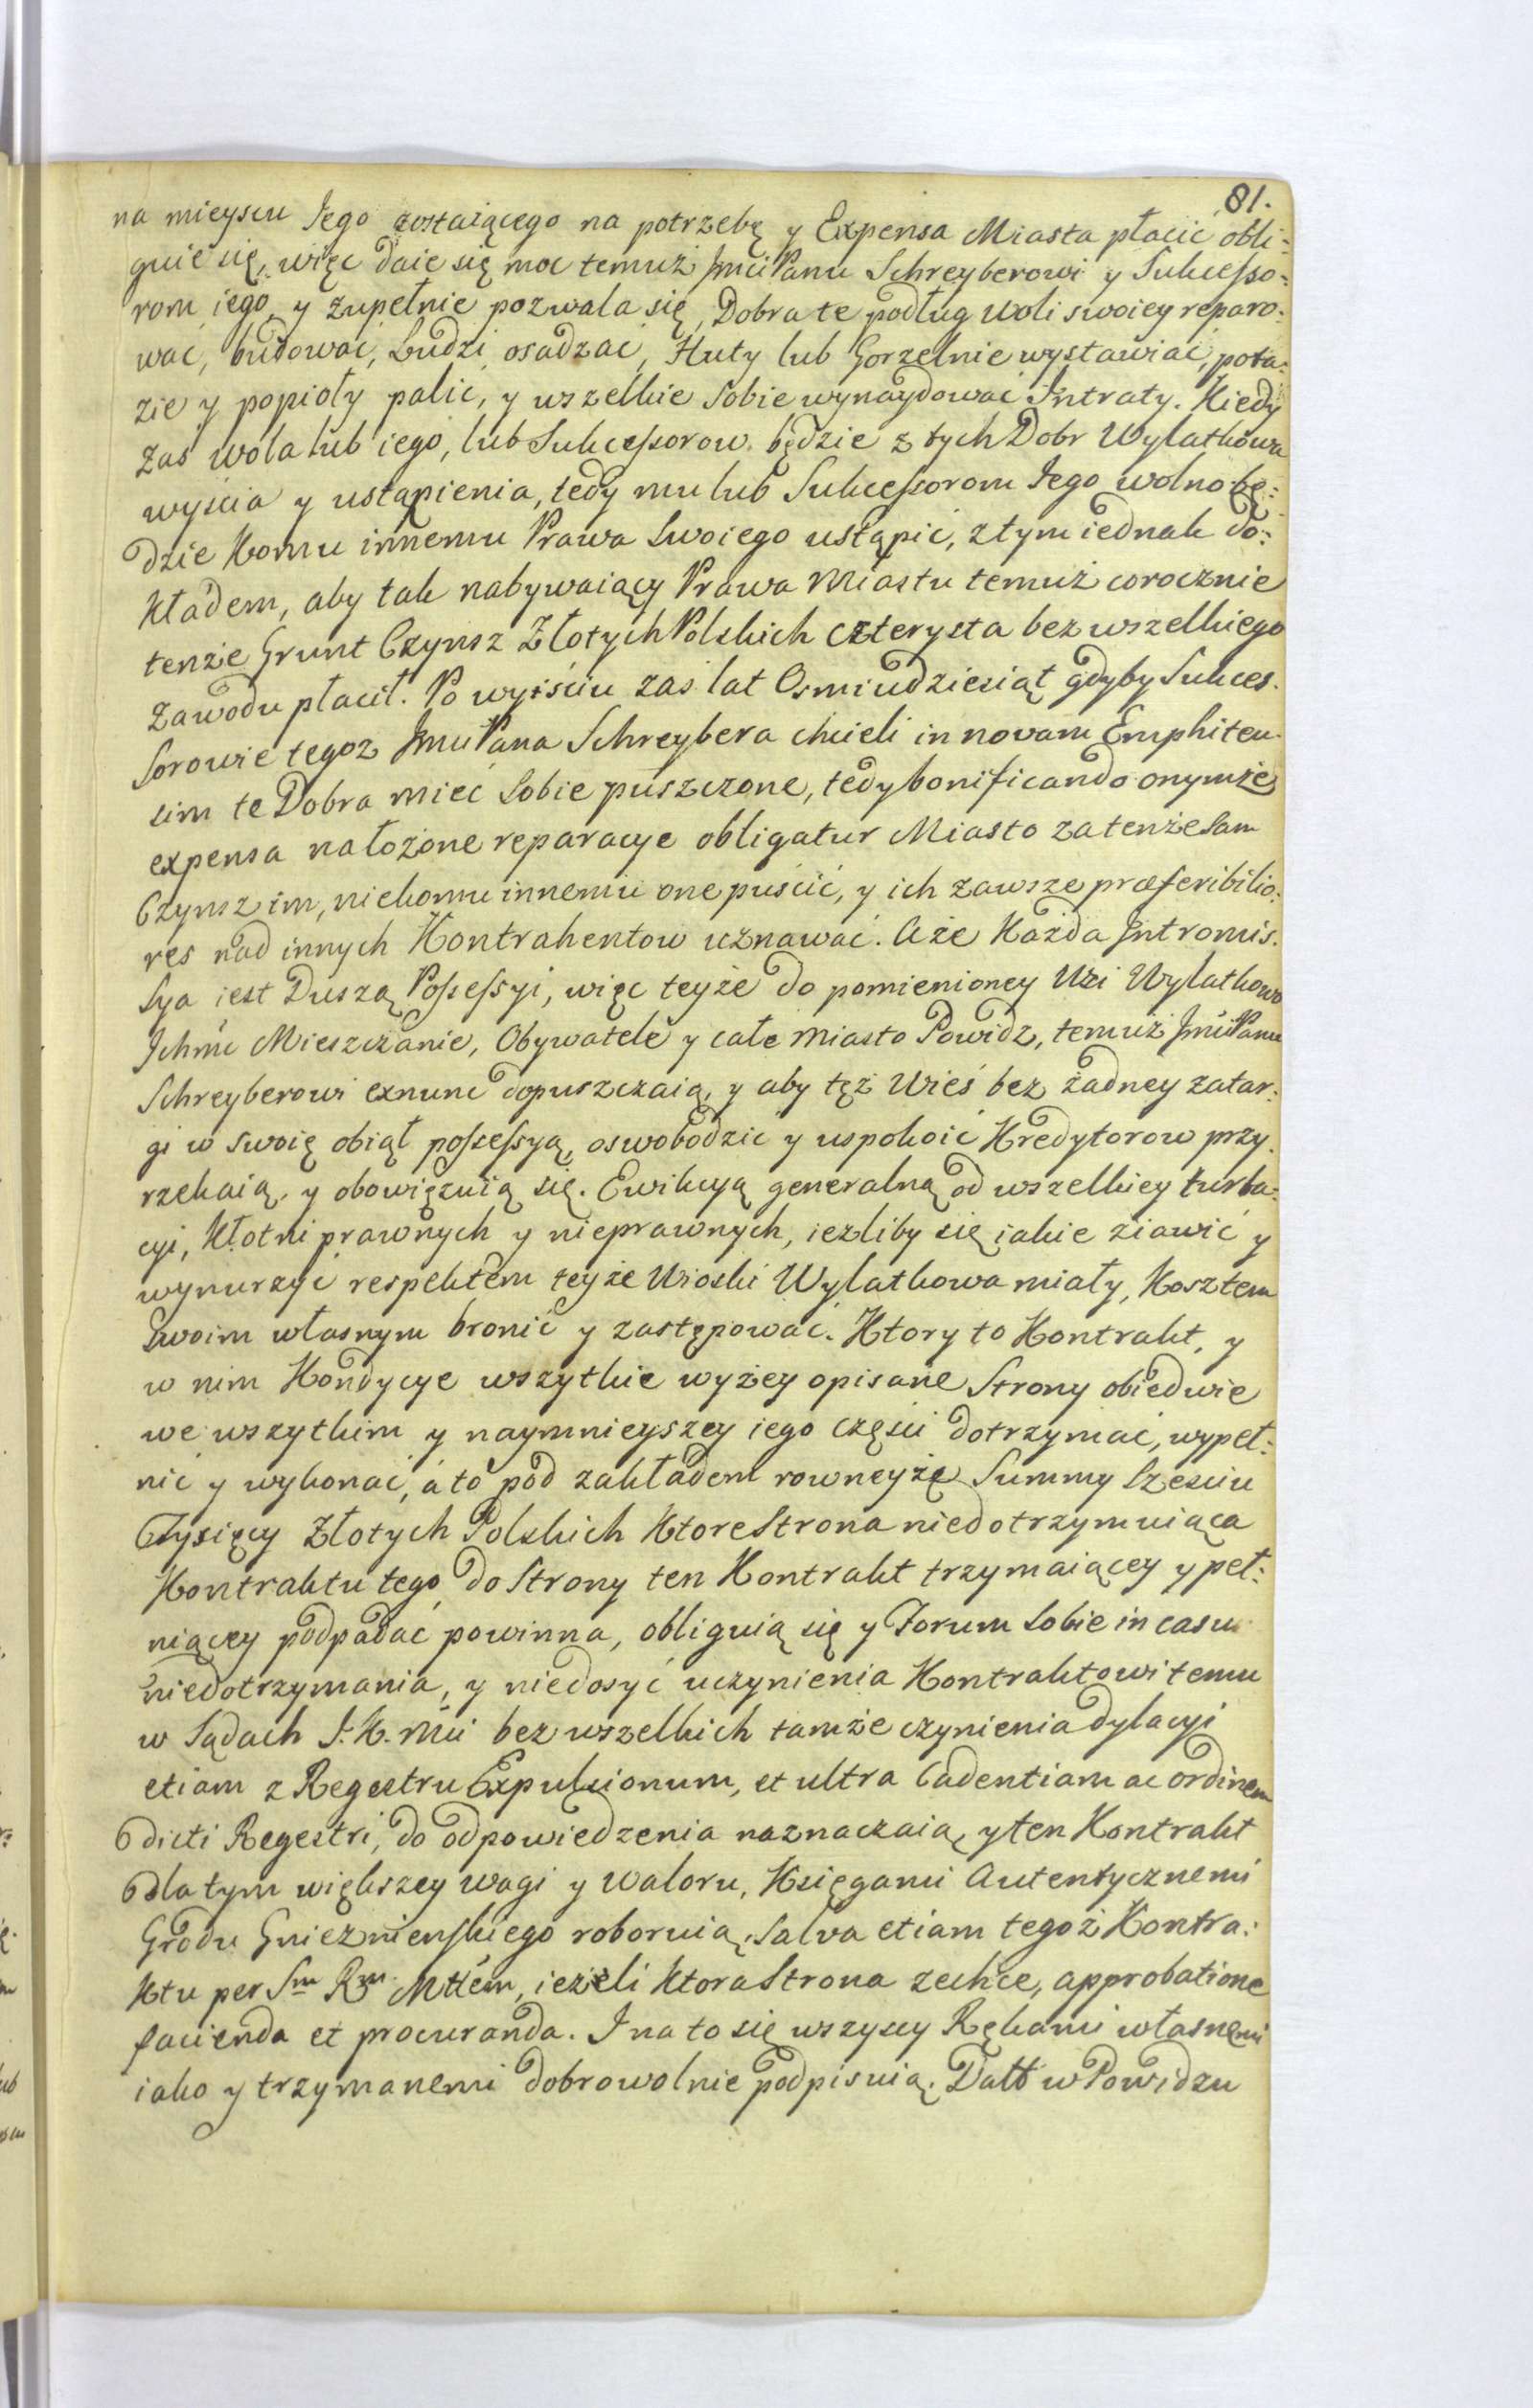 81.
na mieyscu Jego zostaiącego na potrzebę y Expensa Miasta płacić obli:
guie się, więc daie się moc temuż Jmci Panu Schreyberowi y Sukcesso:
rom iego, y zupełnie pozwala się, Dobra te podług woli swoiey reparo:
wać, budować, Ludzi osadzać, Huty lub Gorzelnie wystawiać, pota:
zie y popioły palić, y wszelkie sobie wynaydować Intraty. Kiedy
zas wola lub iego, lub Sukcessorow będzie z tych Dobr Wylatkowa
wyścia y ustąpienia, tedy mu lub Sukcessorom Jego wolno bę:
dzie komu innemu Prawa Swoiego ustąpić, z tym iednak do:
kładem, aby tak nabywaiący Prawa Miastu temuż corocznie
tenże Grunt Czynsz Złotych Polskich czterysta bez wszelkiego
zawodu płacił. Po wyiściu zaś lat Osmiudziesiąt gdyby Sukces.
sorowie tegoz Jmci Pana Schreybera chcieli in novam Emphiteu.
sim te Dobra mieć sobie puszczone, tedy bonificando onymże
expensa nałożone reparacye obligatur Miasto za tenże sam
Czynsz im, niekomu innemu one puścić, y ich zawsze præferibilio:
res nad innych Kontrahentow uznawać. Aże Każda Intromis.
sya iest Duszą Possessyi, więc teyże do pomienioney Wsi Wylatkowo
Ichmć Mieszczanie, Obywatele y całe Miasto Powidz, temuż Jmci Panu
Schreyberowi exnunc dopuszczaią, y aby tęż Wieś bez żadney zatar:
gi w swoię obiął possessyą, oswobodzić y uspokoić Kredytorow przy.
rzekaią, y obowięzuią się. Ewikcyą generalną od wszelkiey turba:
cyi, Kłotni prawnych y nieprawnych, iezliby się iakie ziawić y
wynurzyć respektem teyże Wioski Wylatkowa miały, Kosztem
swoim własnym bronić y zastępować. Ktory to Kontrakt, y
w nim Kondycye wszytkie wyżey opisane Strony obiedwie
we wszytkim y naymnieyszey iego części dotrzymać, wypeł:
nić y wykonać, á to pod zakładem rowneyże Summy Szesciu
Tysięcy Złotych Polskich Ktore Strona niedotrzymuiąca
Kontraktu tego, do Strony ten Kontrakt trzymaiącey y peł:
niącey podpadać powinna, obliguią się y Forum sobie in casu
niedotrzymania, y niedosyć uczynienia Kontraktowi temu
w Sądach J. K. Mci bez wszelkich tamże czynienia dylacyi
etiam z Regestru Expulsionum, et ultra Cadentiam ac ordinem
dicti Regestri, do odpowiedzenia naznaczaią, y ten Kontrakt
dla tym większey wagi y waloru, Księgami Autentycznemi
Grodu Gnieznienskiego roboruią, salva etiam tegoż Kontra:
ktu per Sm Rm Mttem, ieżeli Ktora Strona zechce, approbatione
facienda et procuranda. I na to się wszyscy Rękami własnemi
iako y trzymanemi dobrowolnie podpisuią. Datt w Powidzu